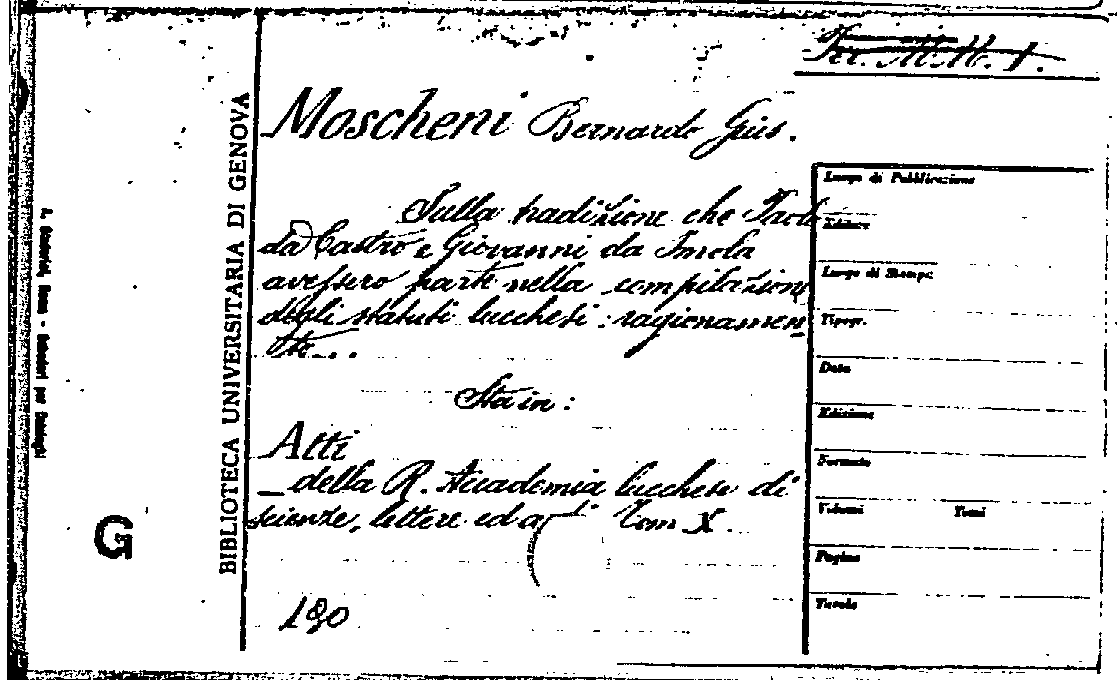 Per. M.M. 1.
Moscheni Bernardo Gius.
Sulla tradizione che Paolo
da Castro e Giovanni da Imola
avessero parte nella compilazione
degli statuti lucchesi: ragionamen
to...
Sta in:
Atti
della R. Accademia lucchese di
scienze, lettere ed arti Tom X.
190
BIBLIOTECA UNIVERSITARIA DI GENOVA
G
Luogo di Pubblicazione
Editore
Luogo di Stampa
Tipogr.
Data
Edizione
Formato
Volumi Tomi
Pagine
Tavole